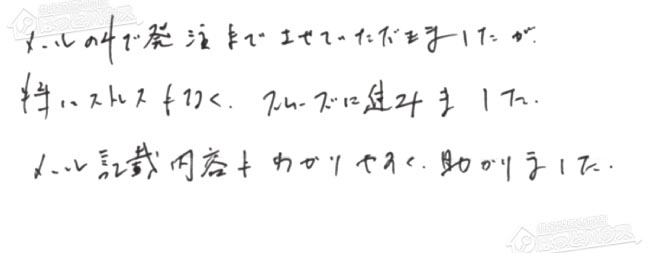 メールのみで発注までさせていただきましたが、
特にストレスもなく、スムーズに進みました。
メール記載内容もわかりやすく、助かりました。